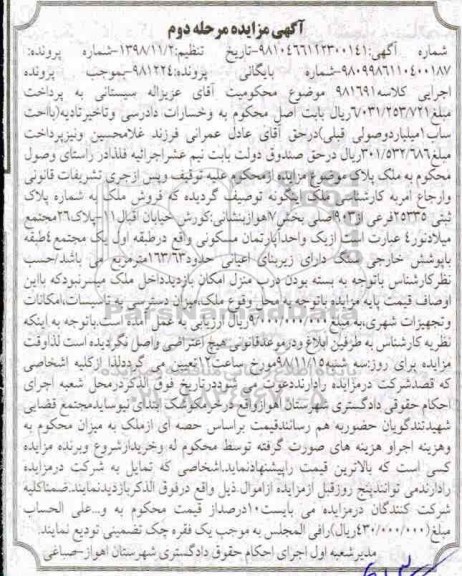 آگهی مزایده مرحله دوم
شماره آگهی:۹۸۱۰۴۶۶۱۱۲۳۰۰۱۴۱-تاریخ تنظیم:۱۳۹۸/۱۱/۲-شماره پرونده:
۹۸۰۹۹۸۶۱۱۰۴۰۰۱۸۷-شماره بایگانی پرونده:۹۸۱۲۲۴-بموجب پرونده
اجرایی کلاسه۹۸۱۶۹۱ موضوع محکومیت آقای عزیزاله سیستانی به پرداخت
مبلغ۷/۰۳۱/۲۵۳/۷۲۱ریال بابت اصل محکوم به وخسارات دادرسی وتاخیرتادیه(بااحت
ساب۱میلیاردوصولی قبلی)درحق آقای عادل عمرانی فرزند غلامحسین ونیزپرداخت
مبلغ۳۰۱/۵۳۲/۶۸۶ریال درحق صندوق دولت بابت نیم عشراجرائیه فلذادر راستای وصول
محکوم به ملک پلاک موضوع مزایده ازمحکوم علیه توقیف وپس ازجری تشریفات قانونی
وارجاع امربه کارشناس، ملک اینگونه توصیف گردیده که فروش ملک به شماره پلاک
ثبتی۲۵۳۳۵فرعی از۹۰۳اصلی بخش۷اهوازبنشانی:کورش خیابان اقبال۱۱-پلاک۲۶مجتمع
میلادنور۴ عبارت است ازیک واحدآپارتمان مسکونی واقع درطبقه اول یک مجتمع۴طبقه
باپوشش خارجی سنگ دارای زیربنای اعیانی حدود۱۶۳/۶۳مترمربع می باشدحسب
نظرکارشناس باتوجه به بسته بودن درب منزل امکان بازدیدداخل ملک میسرنبودکه بااین
اوصاف قیمت پایه مزایده باتوجه به محل وقوع ملک،میزان دسترسی به تاسیسات،امکانات
وتجهیزات شهری،به مبلغ ۹/۰۰۰/۰۰۰/۰۰۰ریال ارزیابی به عمل آمده است.باتوجه به اینکه
نظریه کارشناس به طرفین ابلاغ ودرموعدقانونی هیچ اعتراضی واصل نگردیده است لذاوقت
مزایده برای روز:سه شنبه۹۸/۱۱/۱۵مورخ ساعت۱۲تعیین می گرددلذا ازکلیه اشخاصی
که قصدشرکت درمزایده رادارنددعوت می شوددرتاریخ فوق الذکردرمحل شعبه اجرای
احکام حقوقی دادگستری شهرستان اهوازواقع درخرمکوشک ابتدای نیوسایدمجتمع قضایی
شهیدتندگویان حضوربه هم رسانندقیمت براساس حصه ای ازملک به میزان محکوم به
وهزینه اجراو هزینه های صورت گرفته توسط محکوم له وخریدارشروع وبرنده مزایده
کسی است که بالاترین قیمت راپیشنهادنماید.اشخاصی که تمایل به شرکت درمزایده
رادارندمی توانندپنج روزقبل ازمزایده ازاموال ذیل واقع درفوق الذکربازدیدنمایند.ضمناکلیه
شرکت کنندگان درمزایده می بایست۱۰درصداز قیمت محکوم به و..علی الحساب
مبلغ(۴۳۰/۰۰۰/۰۰۰ریال)رافی المجلس به موجب یک فقره چک تضمینی تودیع نمایند.
مدیرشعبه اول اجرای احکام حقوقی دادگستری شهرستان اهواز-صباغی